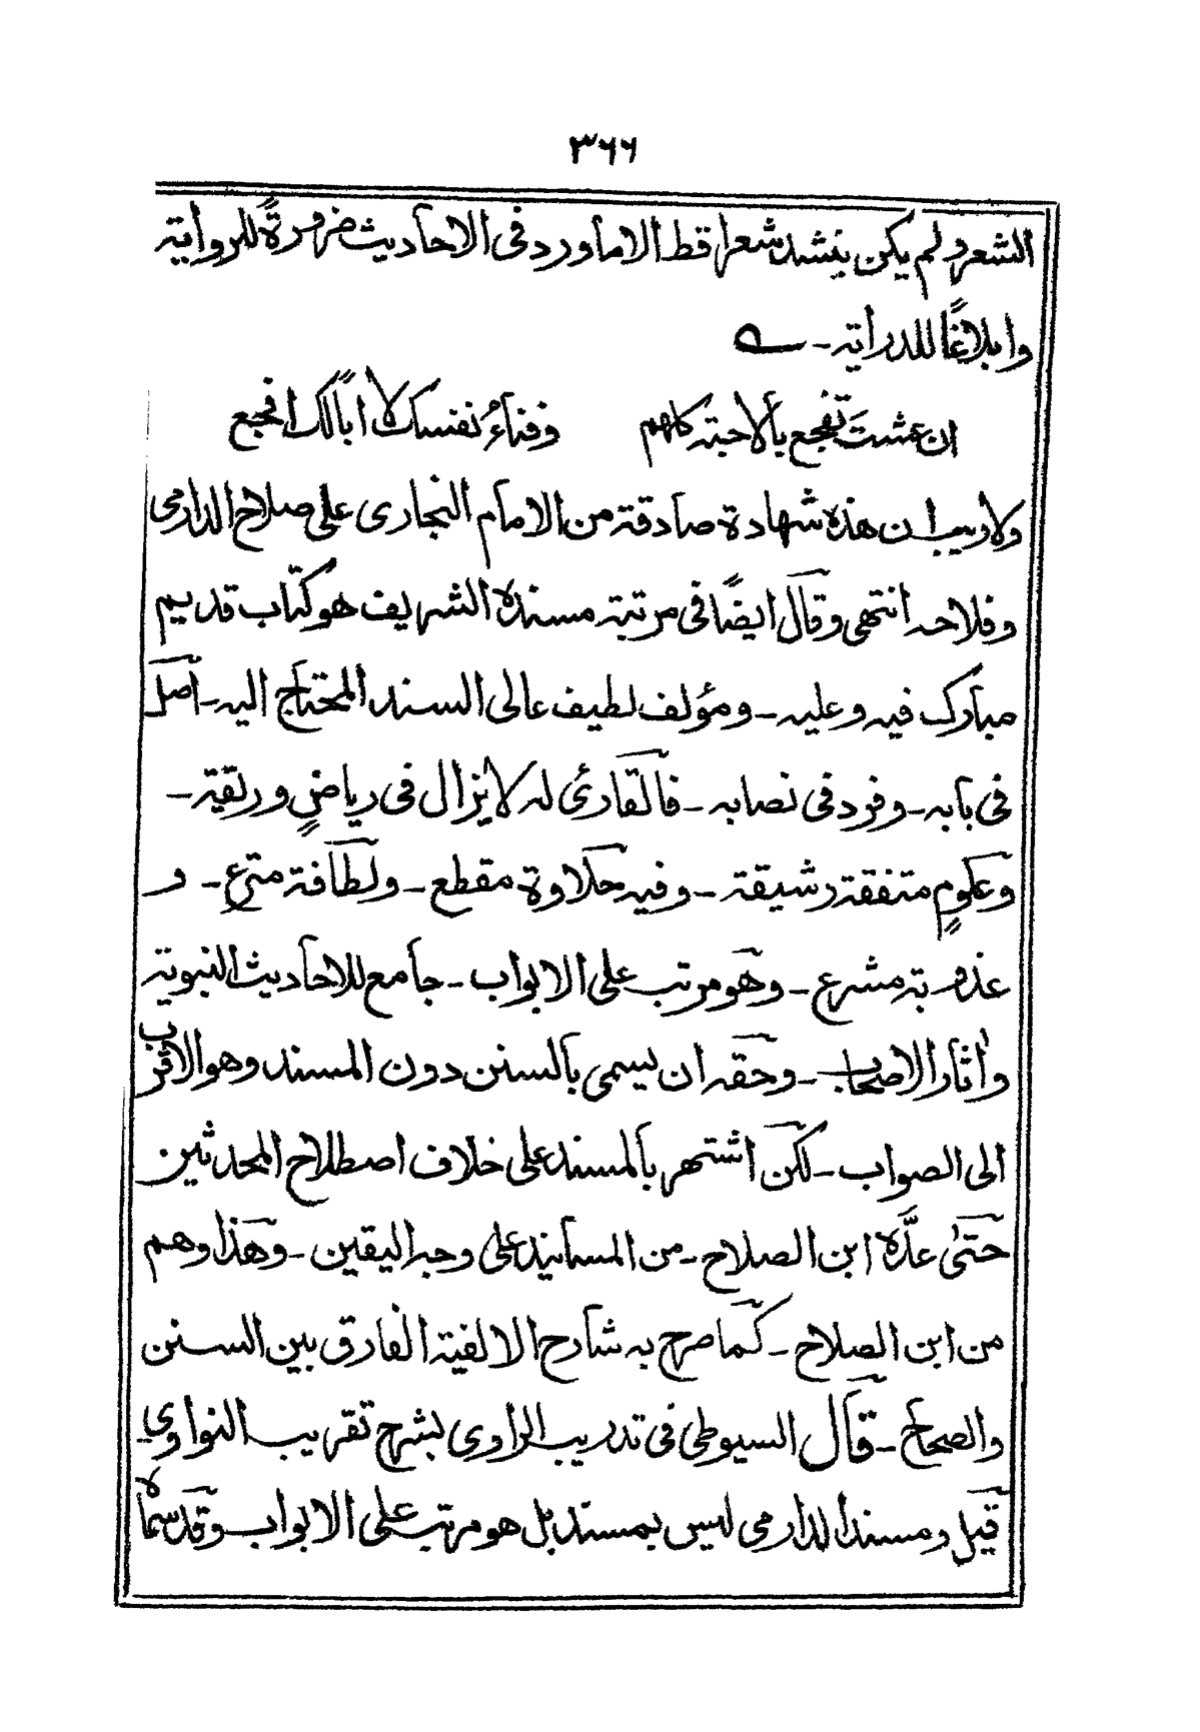 ٣٦٦
الشعر ولم يكن ينشد شعرا قط الا ما ورد في الاحاديث ضرورةً للرواية
وابلاغًا للدراية ـ ؎
ان عشت تفجع بالاحبة كلهم وفناءُ نفسك لا ابًا لك افجع
ولا ريب ان هذه شهادة صادقة من الامام البخارى على صلاح الدارمى
وفلاحه انتهى وقال ايضًا فى مرتبة مسنده الشريف هو كتاب قديم
مبارك فيه وعليه ـ ومؤلف لطيف عالى السند المحتاج اليه ـ اصل
فى بابه ـ وفرد فى نصابه ـ فالقارئ له لا يزال فى رياضٍ وريقة ـ
وعلومٍ متفقة رشيقة ـ وفيه حلاوة مقطع ـ ولطافة مترع ـ و
عذوبة مشرع ـ وهو مرتب على الابواب ـ جامع للاحاديث النبوية
واٰثار الاصحاب ـ وحقه ان يسمى بالسنن دون المسند وهو الاقرب
الى الصواب ـ لكن اشتهر بالمسند على خلاف اصطلاح المحدثين
حتىٰ عدَّه ابن الصلاح ـ من المسانيد على وجه اليقين ـ وهذا وهم
من ابن الصلاح ـ كما صرح به شارح الالفية الفارق بين السنن
والصحاح ـ قال السيوطى فى تدريب الراوى بشرح تقريب النواوى
قيل ومسند الدارمى ليس بمسند بل هو مرتب على الابواب وقد سماه